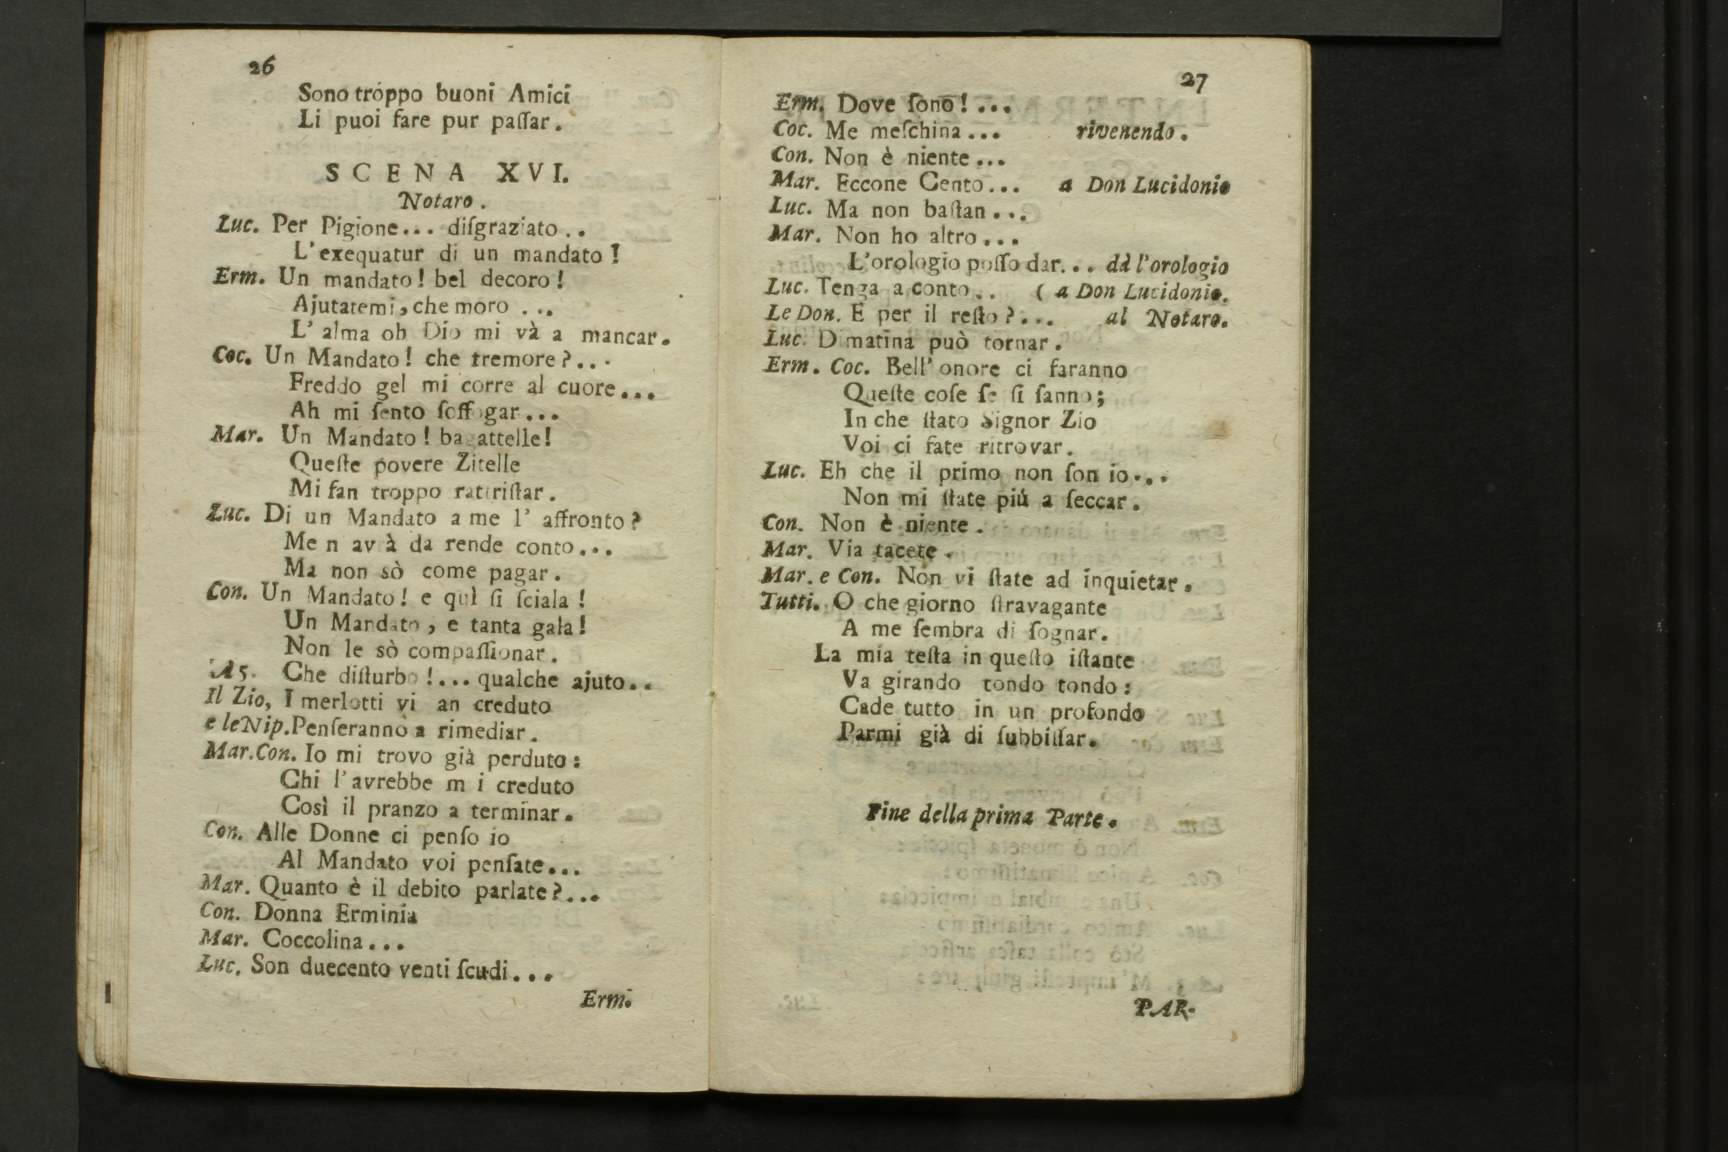 26
Sono tróppo buoni Amici
Li puoi fare pur paſſar.
SCENA XVI.
Notaro.
Luc. Per Pigione... diſgraziato..
L'exequatur di un mandato!
Erm. Un mandato! bel decoro!
Ajutatemi, che moro ...
L' alma oh Dio mi và a mancar.
Coc. Un Mandato! che tremore?...
Freddo gel mi corre al cuore...
Ah mi ſento ſoffogar...
Mar. Un Mandato! bagattelle!
Queſte povere Zitelle
Mi fan troppo rattriſtar.
Luc. Di un Mandato a me l' affronto?
Me n avrà da rende conto...
Ma non sò come pagar.
Con. Un Mandato! e quì ſi ſciala!
Un Mandato, e tanta gala!
Non le sò compaſſionar.
A 5. Che diſturbo!... qualche ajuto..
Il Zio, I merlotti vi an creduto
e le Nip. Penſeranno a rimediar.
Mar. Con. Io mi trovo già perduto:
Chi l'avrebbe m i creduto
Così il pranzo a terminar.
Con. Alle Donne ci penſo io
Al Mandato voi penſate...
Mar. Quanto è il debito parlate?...
Con. Donna Erminia
Mar. Coccolina...
Luc. Son duecento venti ſcudi...
Erm.
27
Erm. Dove ſono!...
Coc. Me meſchina... rivenendo.
Con. Non è niente...
Mar. Eccone Cento... a Don Lucidonio
Luc. Ma non baſtan...
Mar. Non ho altro...
L'orologio poſſo dar... dà l'orologio
Luc. Tenga a conto.. ( a Don Lucidonio.
Le Don. E per il reſto?... al Notaro.
Luc. Dimatina può tornar.
Erm. Coc. Bell' onore ci faranno
Queſte coſe ſe ſi ſanno;
In che ſtato Signor Zio
Voi ci fate ritrovar.
Luc. Eh che il primo non ſon io...
Non mi ſtate piú a ſeccar.
Con. Non è niente.
Mar. Via tacete.
Mar. e Con. Non vi ſtate ad inquietar.
Tutti. O che giorno ſtravagante
A me ſembra di ſognar.
La mia teſta in queſto iſtante
Va girando tondo tondo:
Cade tutto in un profondo
Parmi già di ſubbiſſar.
Fine della prima Parte.
PAR-